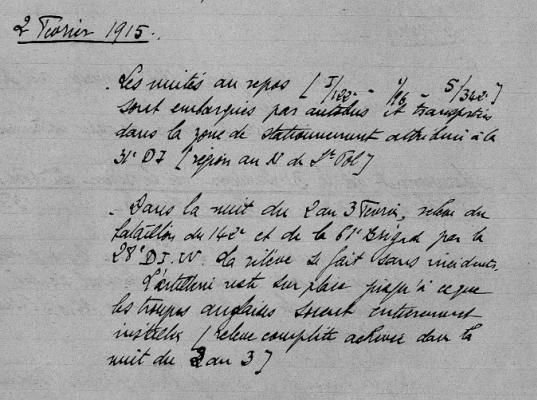 2 Fevrier 1915.
. Les unités au repos [ I/122e - 1/96 - 5/342e ]
sont embarquées par autobus et transportées
dans la zone de stationnement attribuée à la
31e DI [ région au N de St Pol ]
. Dans la nuit du 2 au 3 Fevrier, relève du
bataillon du 142e et de la 61e Brigade par la
28e D.I.W. La relève se fait sans incidents.
L'artillerie reste sur place jusqu'à ce que
les troupes anglaises soient entièrement
installées ( relève complète achevée dans la
nuit du 2 au 3 ]